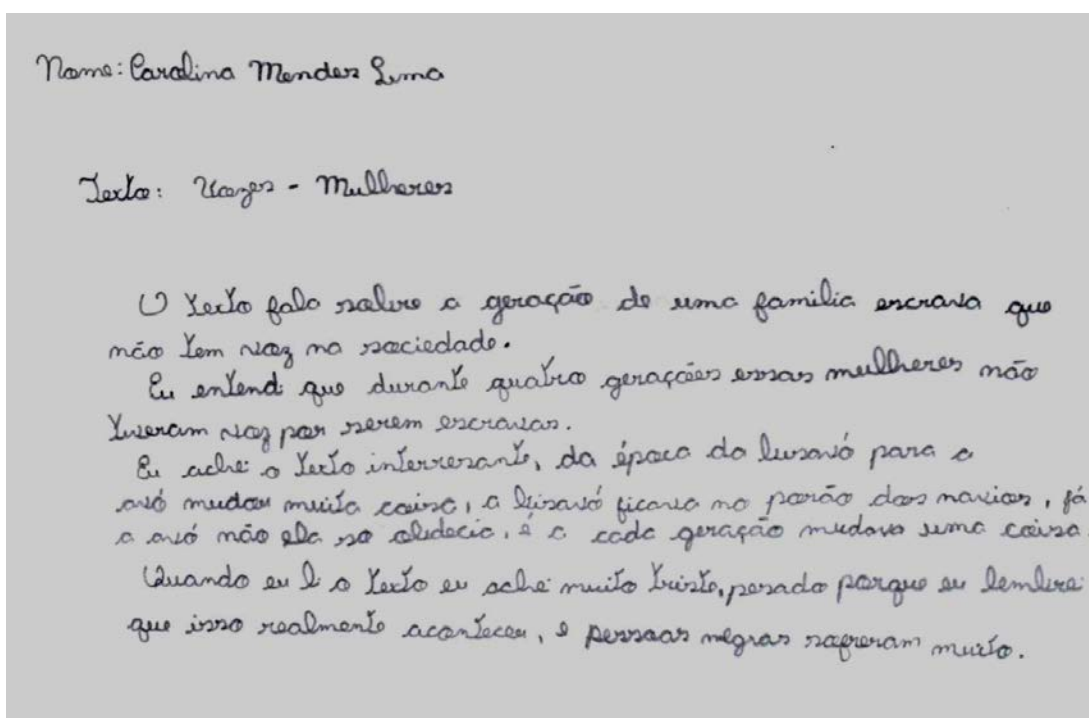 Nome: Carolina Mendes Lima
Texto: Vozes - Mulheres
O texto fala sobre a geração de uma familia escrava que
não tem voz na sociedade.
Eu entendi que durante quatro gerações essas mulheres não
tiveram voz por serem escravas.
Eu achei o texto interresante, da época da bisavó para a
avó mudou muita coisa, a bisavó ficava no porão dos navios, já
a avó não ela so obdecia, é a cada geração mudava uma coisa.
Quando eu li o texto eu achei muito triste, pesado porque eu lembrei
que isso realmente aconteceu, e pessoas negras sofreram muito.